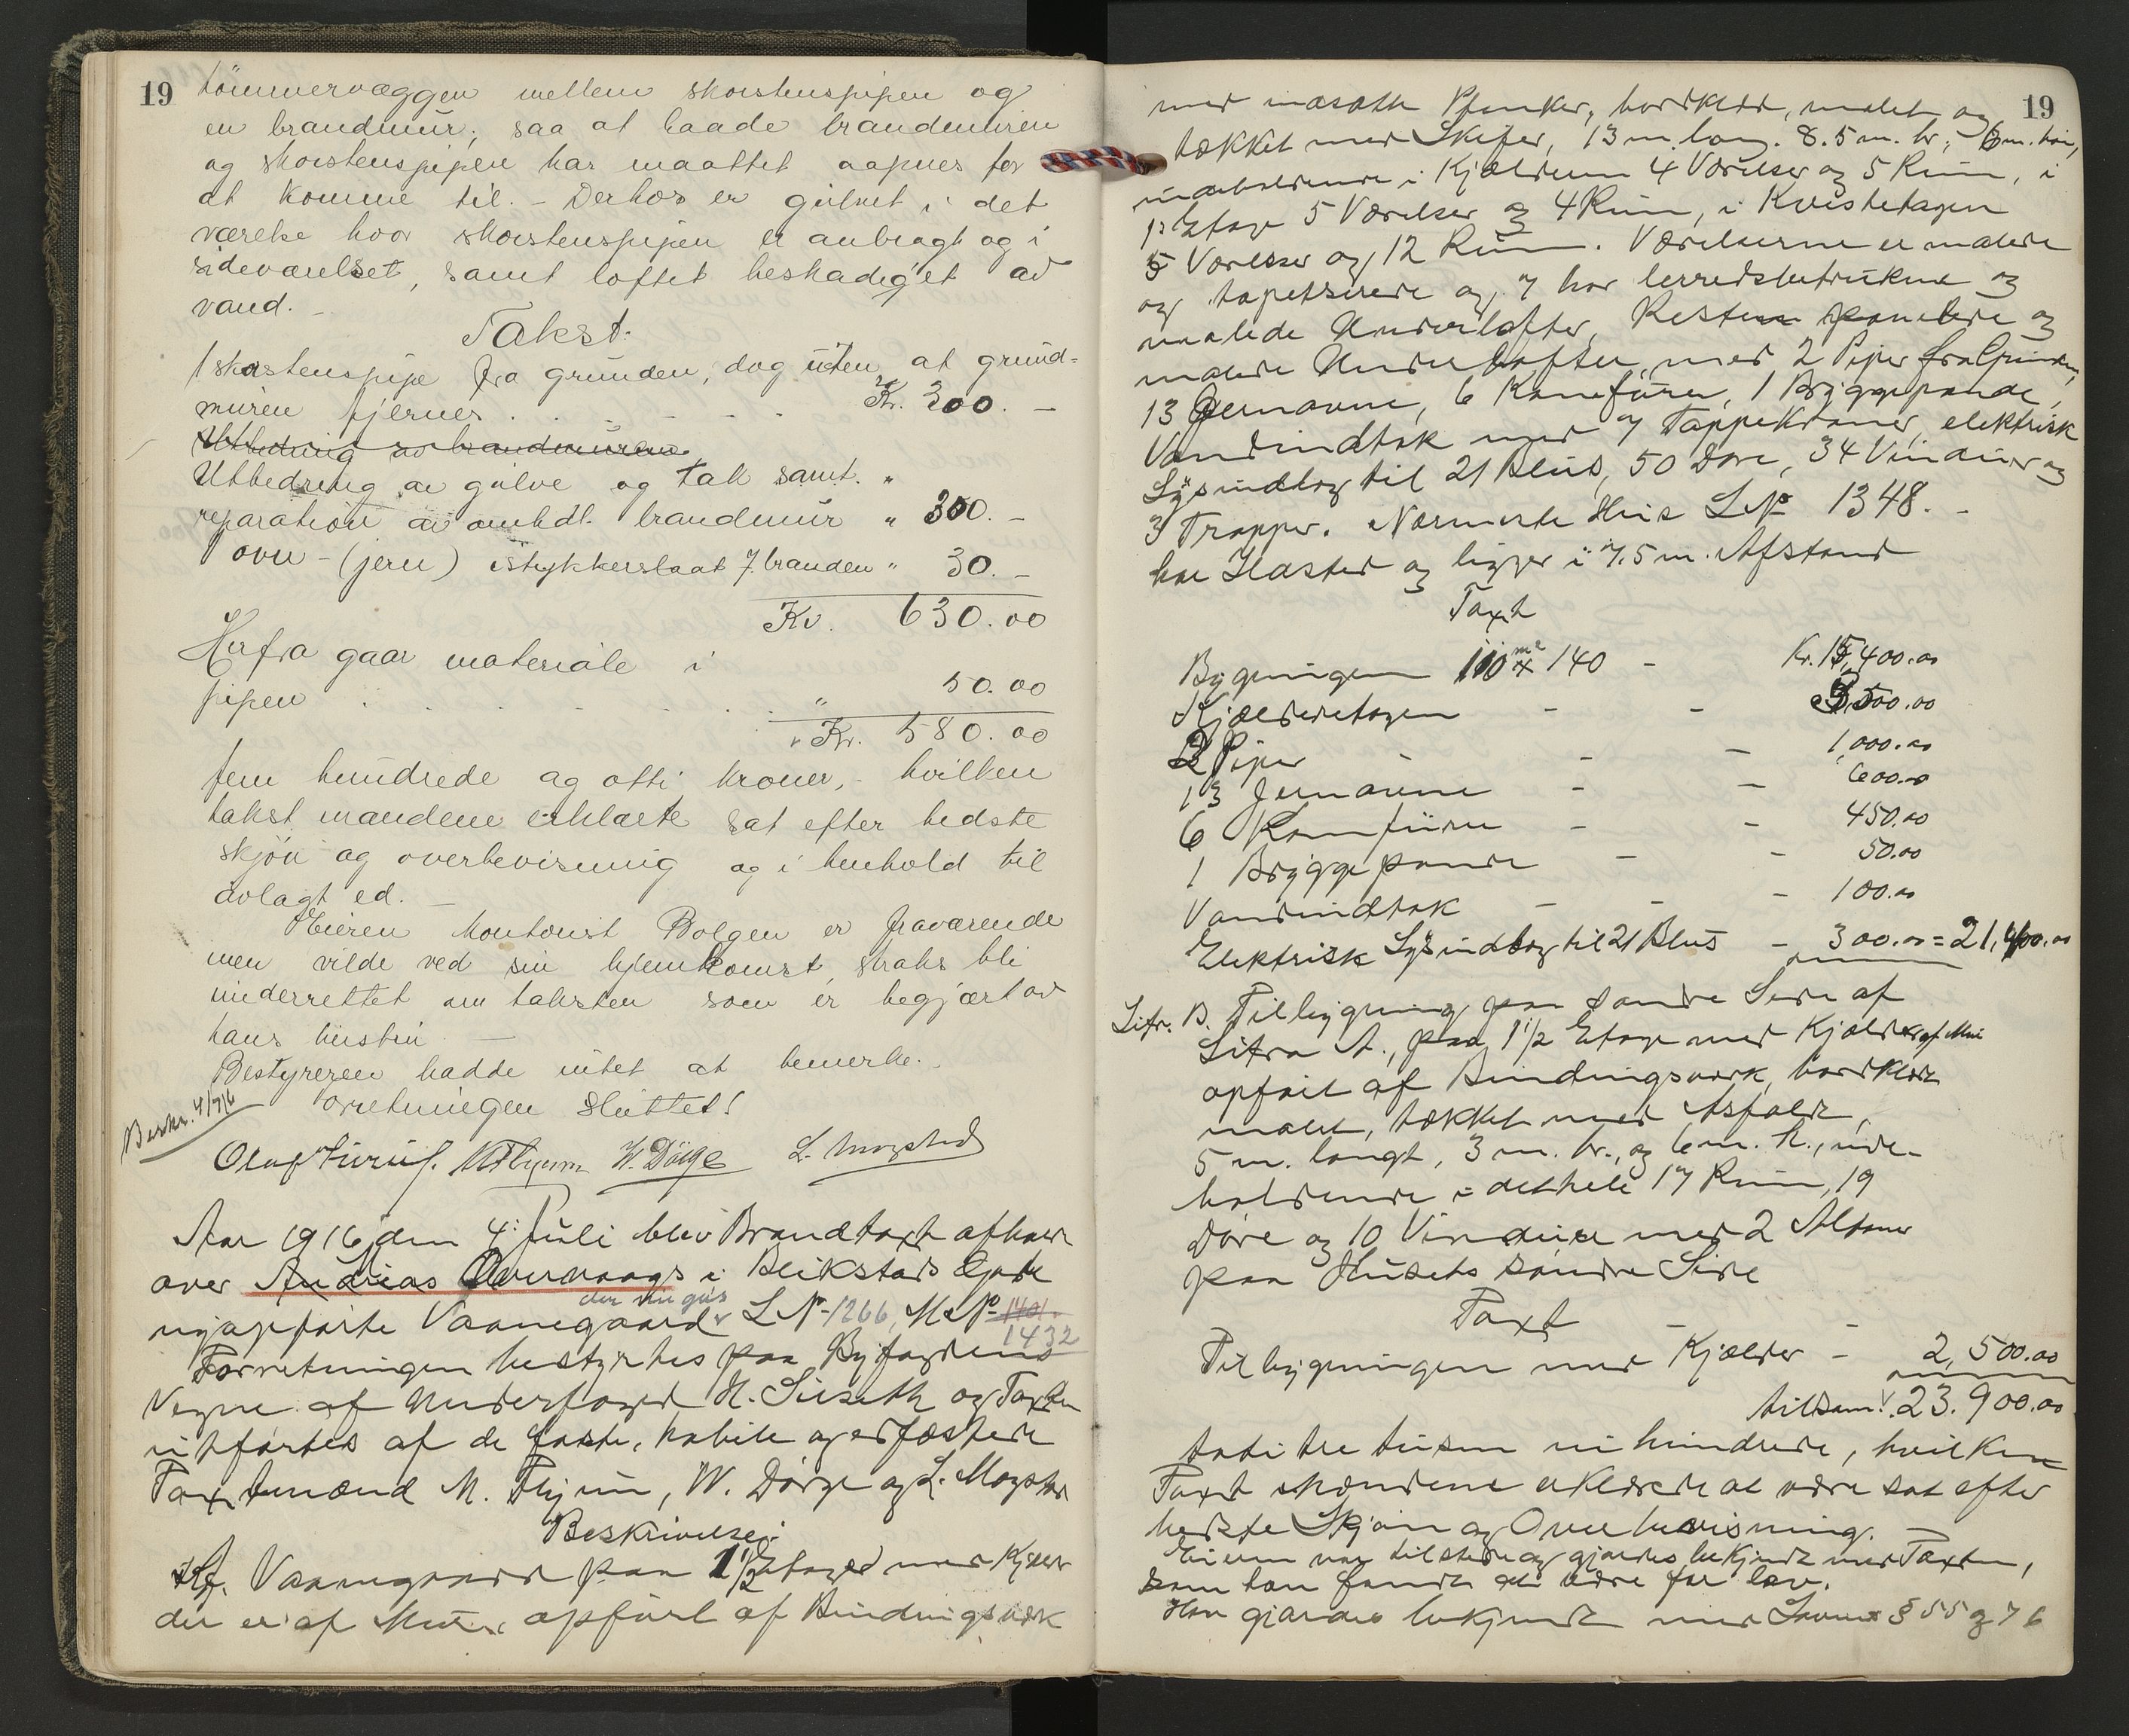 19
tömmervæggen mellem skorstenspipen og
en brandmur; saa at baade brandmuren
og skorstenspipen har maattet aapnes for
at komme til. - Derhos er gulvet i det
værelse hvor skorstenspipen er anbragt og i
sideværelset, samt loftet beskadiget av
vand. -
Takst.
1 skorstenspipe fra grunden, dog uten at grund=
muren fjernes . . . . Kr. 200. -
Utbedring av brandmuren
Utbedring av gulve og tak samt. "
reparation av omhdl. brandmur " 300. -
1 ovn - (jern) istykkerslaat f. branden " 30. -
Kr. 630.00
Herfra gaar materiale i
pipen . . . . . " 50.00
Kr. 580.00
fem hundrede og otti kroner, - hvilken
takst mændene erklærte sat efter bedste
skjön og overbevisning og i henhold til
avlagt ed. -
Eieren kontorist Bolgen er fraværende
men vilde ved sin hjemkomst straks bli
underrettet om taksten som er begjært av
hans hustru. -
Bestyreren hadde intet at bemerke. -
Forretningen sluttet!
Beskr. 4/7 16
W. Dörge L. Mogstad
Aar 1916 den 4. Juli blev Brandtaxt afholdt
over Andreas Overvaags i Blikstads Gade
nyopførte Vaanegaard L. No 1266, M No 1401.
1432
Forretningen bestyrtes paa Byfogdens
Vegne af Underfoged H. Siiseth og Taxten
utførtes af de faste, habile og edfæstede
Taxtmænd M. Thyrum, W. Dörge og L. Mogstad
Beskrivelse:
Vaanegaard paa 1 1/2 Etage med Kjelder
der er af Mur, opført af Bindingsværk
19
med inasatte Planker, bordklædt, malet og
tækket med Skifer, 13 m. lang. 8.5 m. br., 6 m. høi,
indeholdende i Kjælderen 4 Værelser og 5 Rum, i
1ste Etage 5 Værelser og 4 Rum, i Kvistetagen
5 Værelser og 12 Rum. Værelserne er malede
og tapetserede og 7 har lerredsbetrukne og
malede Underlofter, Resten panelede og
malede Underlofter, med 2 Piper fra Grunden,
13 Jernovne, 6 Komfurer, 1 Bryggepande,
Vandindtak med 7 Tappekraner, elektrisk
Lysindlæg til 21 Blus, 50 Døre, 34 Vinduer og
3 Trapper. Nærmeste Hus L No 1348. -
har Ildsted og ligger i 7.5 m. Afstand
Taxt
Bygningen 110 m2 x 140 - Kr. 15,400.00
Kjælderetagen - - 3,500.00
2 Piper - - 1,000.00
13 Jernovne - - 600.00
6 Komfurer - - 450.00
1 Bryggepande - - 50.00
Vandindtak - - - 100.00
Elektrisk Lysindlæg til 21 Blus - 300.00 = 21,400.00
Litr. B. Tilbygning paa søndre Side af
Litra A., paa 1 1/2 Etage med Kjælder af Mur
opført af Bindingsværk, bordklædt
malet, tækket med Asfalt,
5 m. langt, 3 m. br., og 6 m. h., inde-
holdende i dethele 17 Rum, 19
Døre og 10 Vinduer med 2 Altaner
paa Husets søndre Side
Taxt
Tilbygningen med Kjælder - 2,500.00
tilsam. 23.900.00
toti tre tusen ni hundrede, hvilken
Taxt Mændene erklærede at være sat efter
bedste Skjøn og Overbevisning.
Eieren var tilstede og gjordes bekjendt med Taxten,
som han fandt at være for lav.
Han gjordes bekjendt med Lovens § 55 og 76